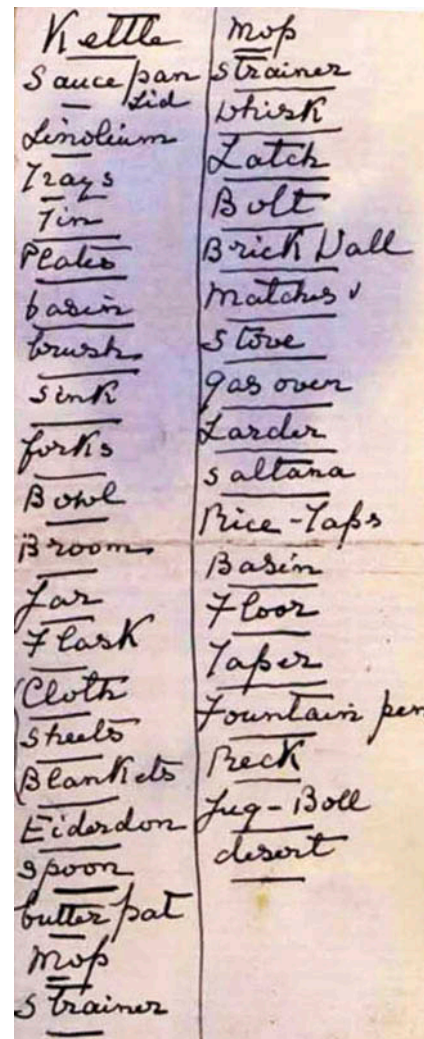 Kettle
Sauce pan
Lid
Linolium
Trays
Tin
Plates
basin
brush
sink
forks
Bowl
Broom
Jar
Flask
Cloth
Sheets
Blankets
Eiderdon
Spoon
butter pat
Mop
Strainer
Mop
Strainer
Whisk
Latch
Bolt
Brick Wall
Matches
Stove
gas oven
Larder
saltana
Rice - Taps
Basin
Floor
Taper
Fountain pen
Reck
Jug - Boll
desert